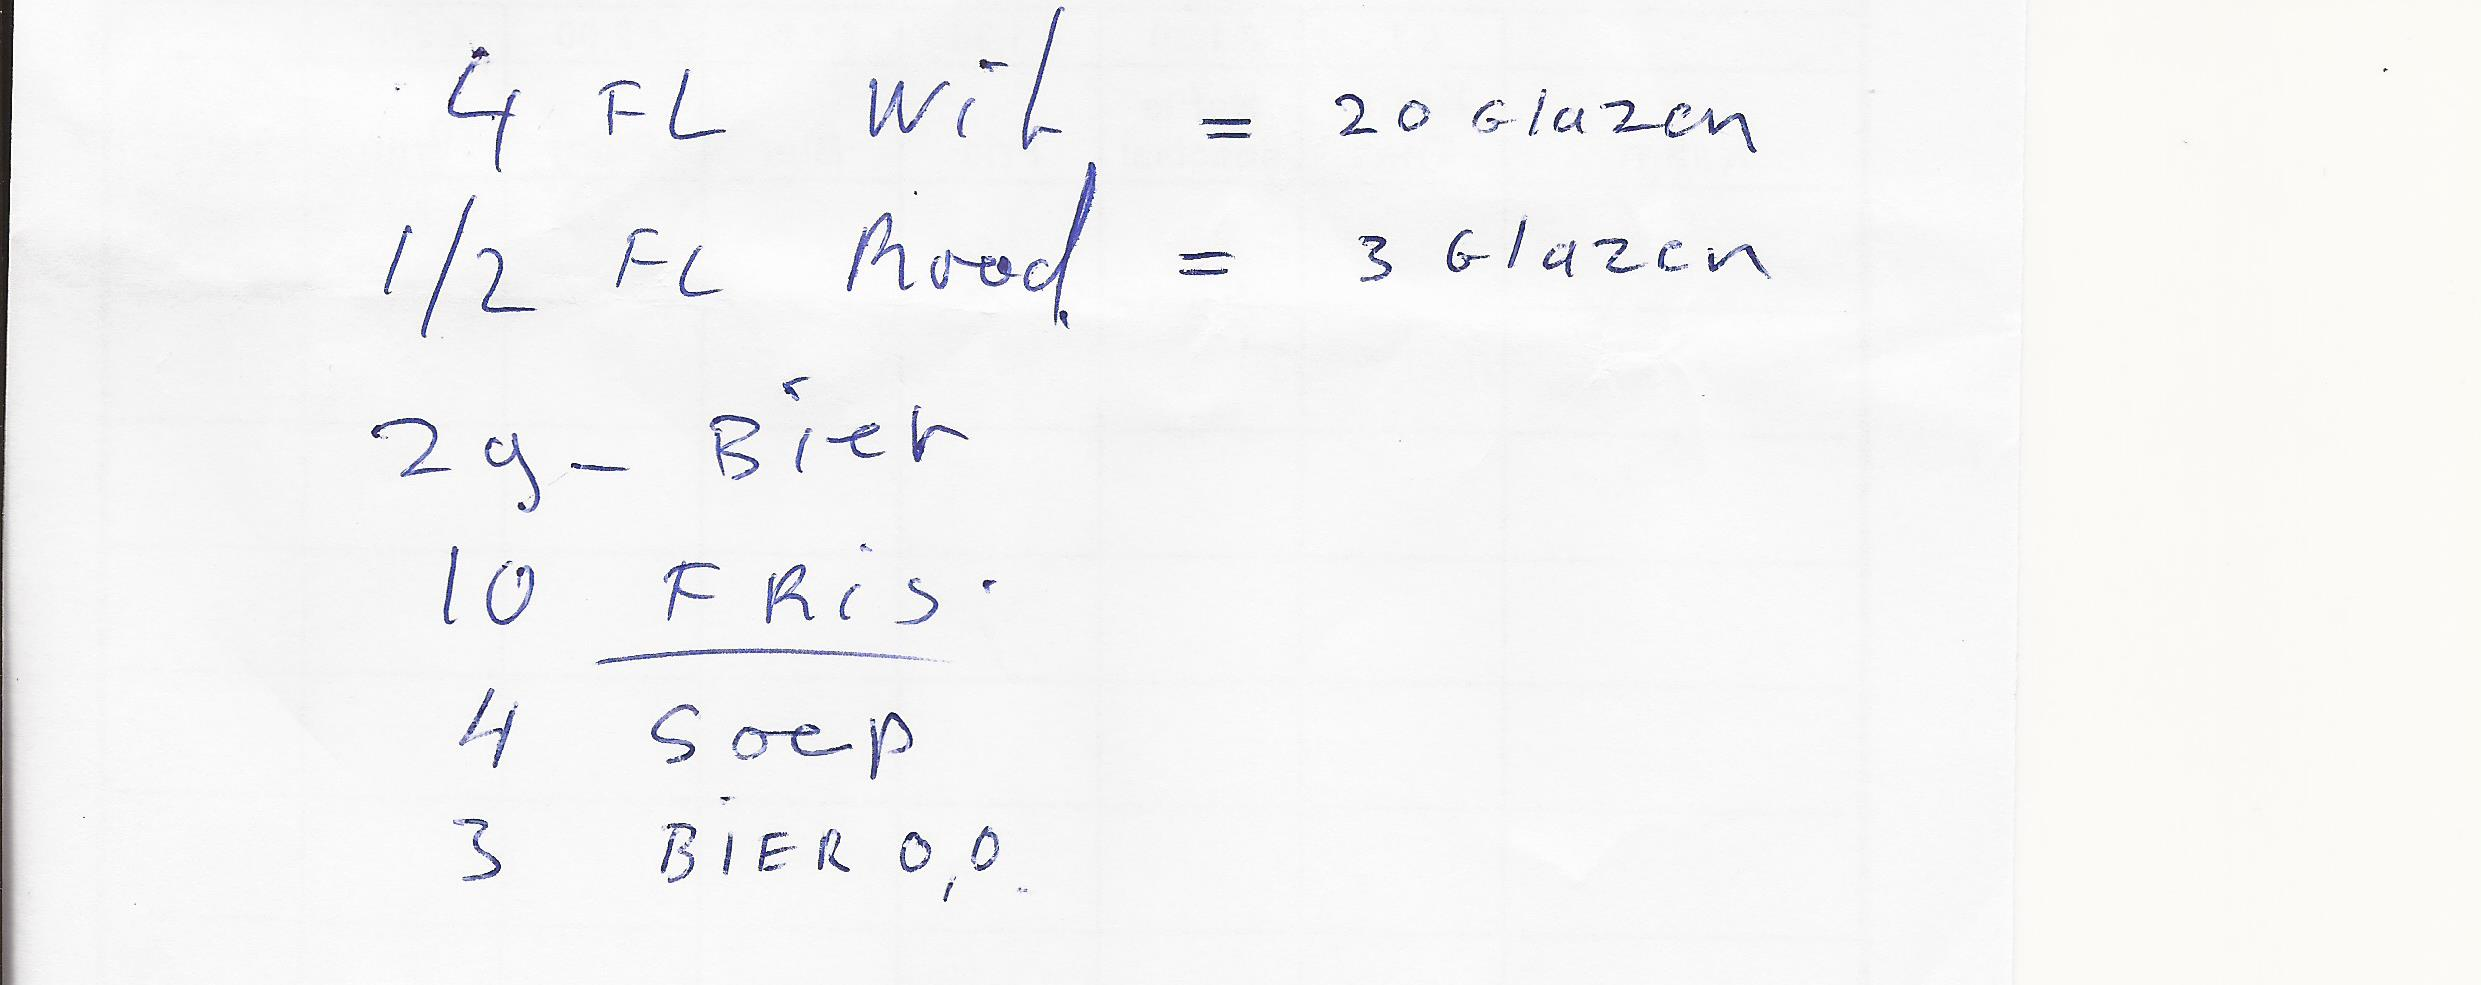 4 FL Wit = 20 Glazen
1/2 FL Rood = 3 Glazen
29 - Bier
10 FRis.
4 Soep
3 BIER 0,0.